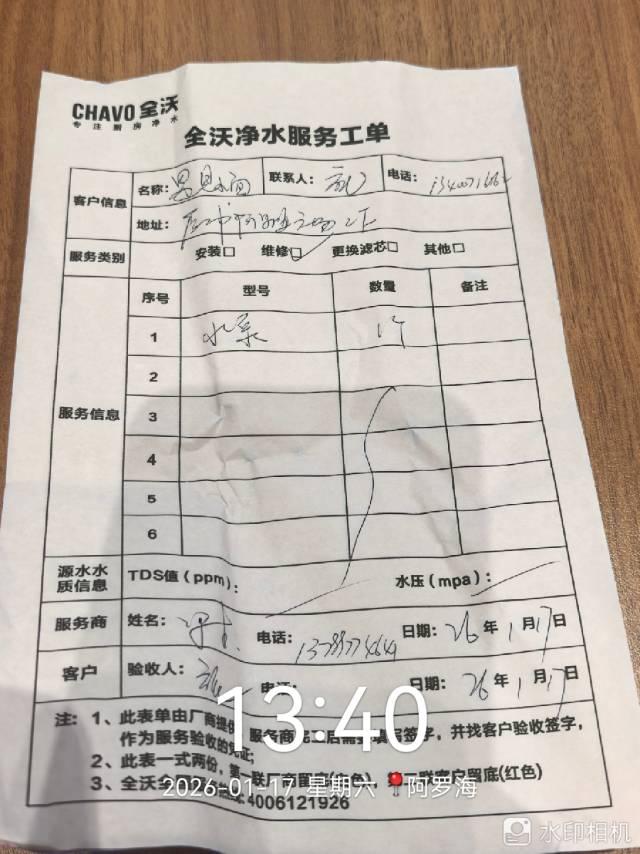 CHAVO 全沃
专注厨房净水
全沃净水服务工单
客户信息 名称： 联系人： 电话：
地址：
服务类别 安装□ 维修□ 更换滤芯□ 其他□
服务信息 序号 型号 数量 备注
1 水泵 1个
2
3
4
5
6
源水水质信息 TDS值（ppm）： 水压（mpa）：
服务商 姓名： 电话： 日期：26年1月17日
客户 验收人： 电话： 日期：26年1月17日
注：1、此表单由厂商提供，服务商完工后需要填写签字，并找客户验收签字，
作为服务验收的凭证；
2、此表一式两份，第一联厂商留底(白色)，第二联客户留底(红色)
3、全沃全国 4006121926
13:40
2026-01-17 星期六 阿罗海
水印相机